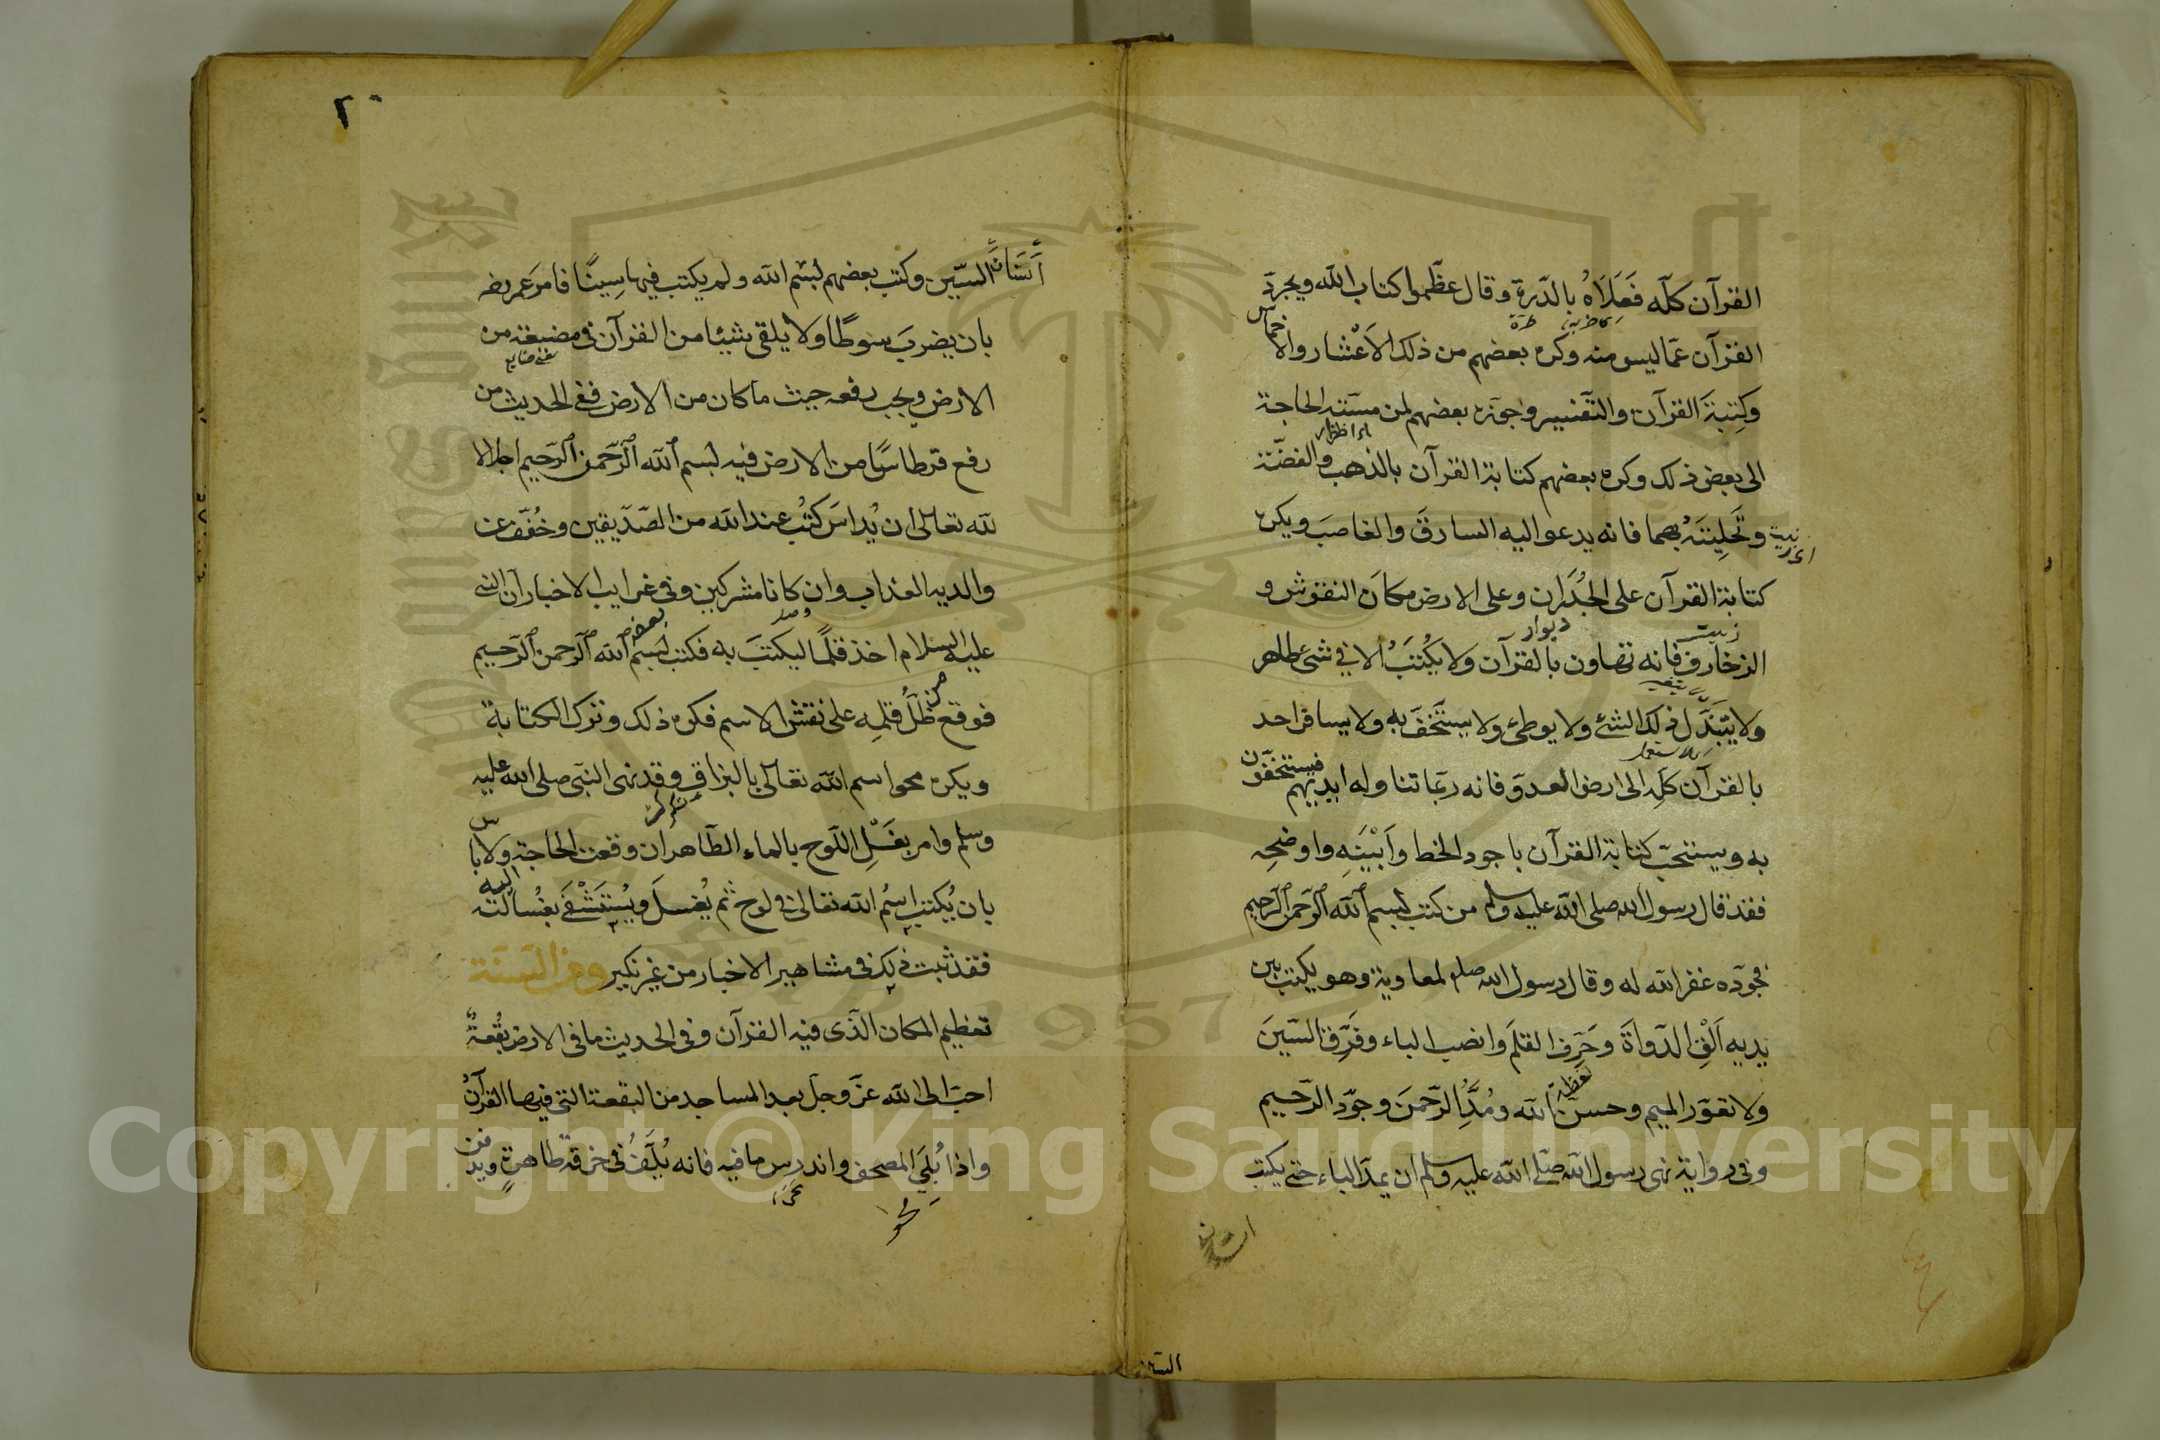 القرآن كلّه فَعَلَاهُ بالدّرةِ وقال عظّموا كتاب الله ويجرّد
القرآن عمّا ليس منه وكره بعضهم من ذلك الاَعْشار والاخماس
وكِتبةَ القرآن والتّفسير وجوّزه بعضهم لمن مسّته الحاجة
الى بعض ذلك وكره بعضهم كتابة القرآن بالذهب والفضّة
وتَحلِيتَهُ بهما فانه يدعو اليه السارقَ والغاصبَ ويكره
كتابة القرآن على الجُدَران وعلى الارض مكانَ النقوش و
ديوار
زينت
الزخارف فانه تهاون بالقرآن ولا يُكْتَبُ الا في شئ طاهر
ولا يتبذّل ذلك الشئ ولا يوطئ ولا يستخفّ به ولا يسافر احد
بالقرآن كلّه الى ارض العدوّ فانه ربّما تناوله ايديهم فيستخفّون
به ويستحبّ كتابة القرآن باجود الخط وَاَبْيَنِهِ واوضحِه
فقد قال رسول الله صلى الله عليه وسلم من كتب بسم الله الرّحمن الرّحيم
فجوّده غفر الله له وقال رسول الله صلم لمعاوية وهو يكتب بين
يديه اَلْقِ الدّواةَ وحَرّفِ القلَمَ وانصب الباء وفَرِّق السّينَ
ولا تعوّر الميم وحسّن الله ومُدَّ الرّحمنَ وجوّد الرّحيم
وفى رواية نهى رسول الله صلى الله عليه وسلم ان يمدّ الباء حتى يكتب
السّين
٢٠
السّين وكتب بعضهم لبسم الله ولم يكتب فيها سِينًا فامرَ عمر رضه
بان يضربَ سوطًا ولا يلقى شيئا من القرآن فى مضيعة من
الارض ويجب رفعه حيث ما كان من الارض ففى الحديث من
رفع قرطاسًا من الارض فيه بسم الله الرّحمن الرّحيم اجلالا
لله تعالى ان يُداسَ كتُب عند الله من الصّدّيقين وخُفّف عن
والديه العذاب وان كانا مشركين وفى غرايب الاخبار ان النبى
عليه السلام اخذ قلمًا ليكتبَ به فكتب بسم الله الرّحمن الرّحيم
فوقع ظلُّ قلمِه على نقش الاسم فكره ذلك وترك الكتابة
ويكره محو اسم الله تعالى بالبزاق وقد نهى النبى صلى الله عليه
وسلم وامر بغَسْلِ اللّوح بالماء الطّاهر ان وقعت الحاجة اليه ولا باس
بان يُكتب اسمُ الله تعالى فى لوح ثم يُغسلَ ويُستَشْفَى بغُسالته
فقد ثبت ذلك فى مشاهير الاخبار من غير نكير ومن السّنّة
تعظيم المكان الّذى فيه القرآن وفى الحديث ما فى الارض بُقعةٌ
احبّ الى الله عزّ وجلّ بعد المساجد من البقعة التى فيها القرآنُ
واذا بُلِيَ المصحف واندرس ما فيه فانه يُلَفُّ فى خرقة طاهرةٍ ويدفن